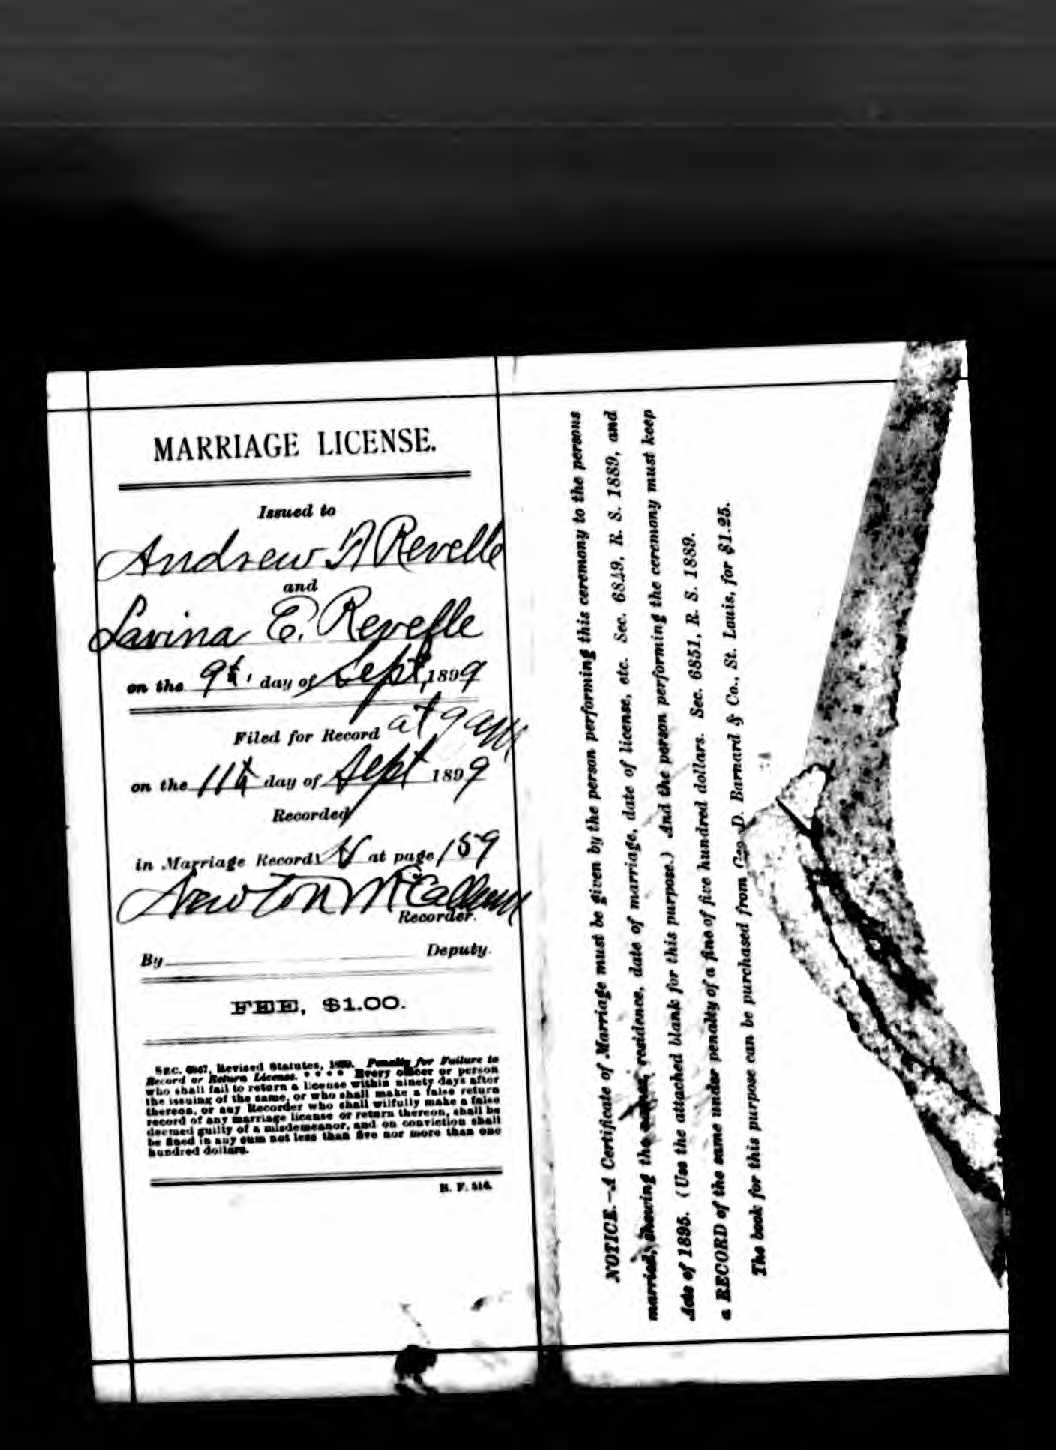 MARRIAGE LICENSE.
Issued to
Andrew A Revelle
and
Lavina E. Revelle
on the 9th day of Sept, 1899
Filed for Record at 9 am
on the 11th day of Sept 1899
Recorded
in Marriage Record V at page 159
Newton McCallum
Recorder.
By Deputy.
FEE, $1.00.
SEC. 6847, Revised Statutes, 1889. Penalty for Failure to
Record or Return License. * * * * Every officer or person
who shall fail to return a license within ninety days after
the issuing of the same, or who shall make a false return
thereon, or any Recorder who shall wilfully make a false
record of any marriage license or return thereon, shall be
deemed guilty of a misdemeanor, and on conviction shall
be fined in any sum not less than five nor more than one
hundred dollars.
NOTICE.—A Certificate of Marriage must be given by the person performing this ceremony to the persons
married, showing the names, residence, date of marriage, date of license, etc. Sec. 6849, R. S. 1889, and
Acts of 1895. (Use the attached blank for this purpose.) And the person performing the ceremony must keep
a RECORD of the same under penalty of a fine of five hundred dollars. Sec. 6851, R. S. 1889.
The book for this purpose can be purchased from Geo. D. Barnard & Co., St. Louis, for $1.25.